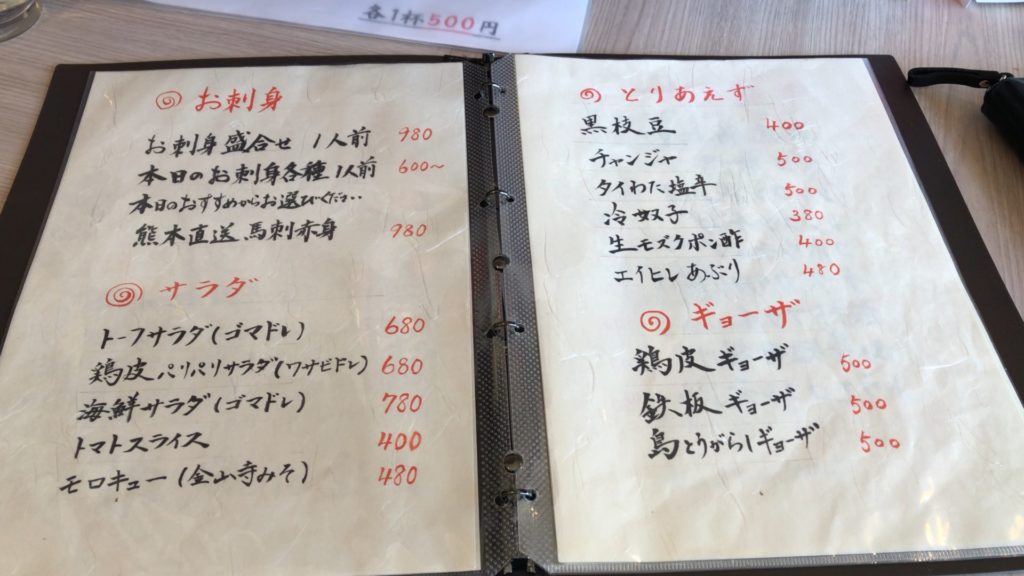 各1杯500円
お刺身
お刺身盛合せ 1人前 980
本日のお刺身各種 1人前 600〜
本日のおすすめからお選びください・・
熊本直送 馬刺赤身 980
サラダ
トーフサラダ(ゴマドレ) 680
鶏皮パリパリサラダ(ワサビドレ) 680
海鮮サラダ(ゴマドレ) 780
トマトスライス 400
モロキュー(金山寺みそ) 480
とりあえず
黒枝豆 400
チャンジャ 500
タイわた塩辛 500
冷奴子 380
生モズクポン酢 400
エイヒレあぶり 480
ギョーザ
鶏皮ギョーザ 500
鉄板ギョーザ 500
島とりがらしギョーザ 500